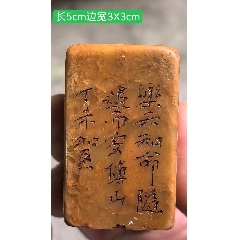 长5cm边宽3X3cm
樂天知命随
遇而安傅山
丁未